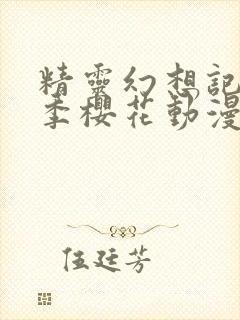 精靈幻想記
季櫻花動漫
伍廷芳